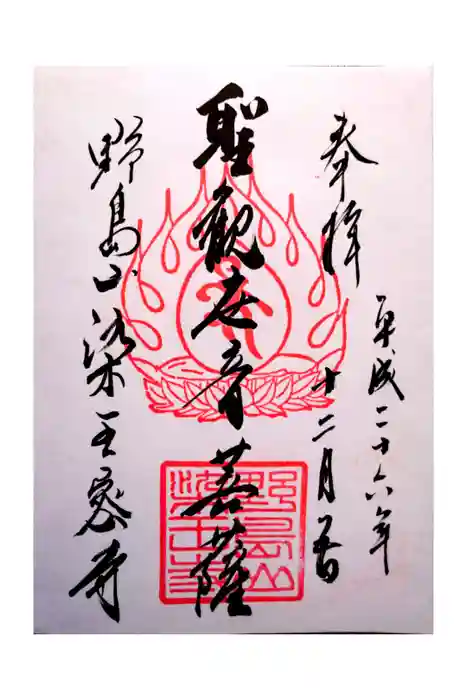 奉拝
平成二十六年
十二月吉日
聖観世音菩薩
野島山染王密寺